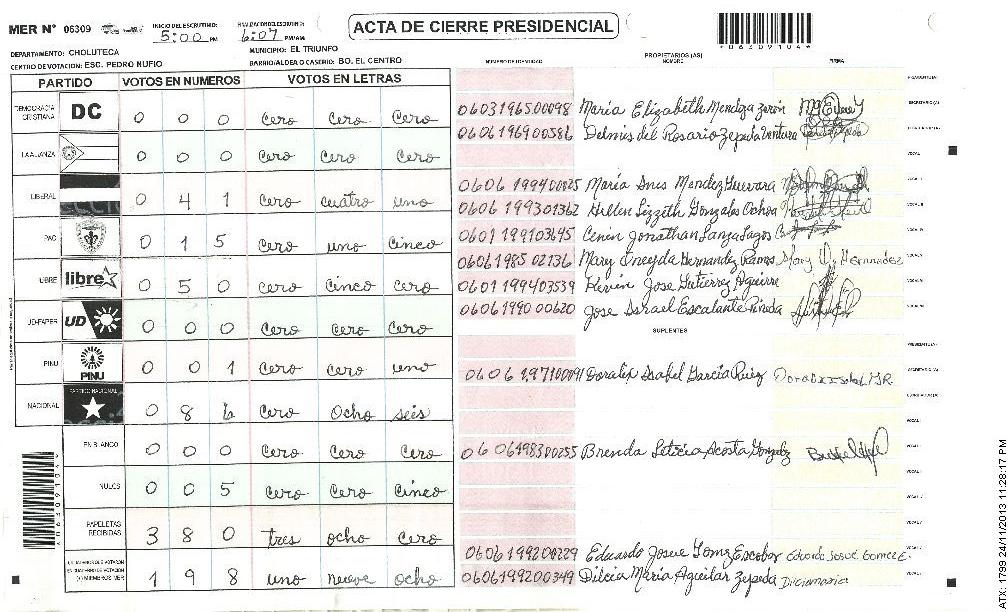 MER N° 06309
INICIO DEL ESCRUTINIO: 5:00 PM
FINALIZACION DEL ESCRUTINIO: 6:07 PM/AM
ACTA DE CIERRE PRESIDENCIAL
*06309104*
DEPARTAMENTO: CHOLUTECA
MUNICIPIO: EL TRIUNFO
CENTRO DE VOTACION: ESC. PEDRO NUFIO
BARRIO/ALDEA O CASERIO: BO. EL CENTRO
PARTIDO VOTOS EN NUMEROS VOTOS EN LETRAS
DEMOCRACIA CRISTIANA DC 0 0 0 Cero Cero Cero
LA ALIANZA 0 0 0 Cero Cero Cero
LIBERAL 0 4 1 Cero cuatro uno
PAC 0 1 5 Cero uno cinco
LIBRE libre 0 5 0 Cero cinco cero
UD-FAPER UD 0 0 0 Cero Cero Cero
PINU PINU 0 0 1 Cero Cero uno
NACIONAL PARTIDO NACIONAL 0 8 6 Cero Ocho seis
EN BLANCO 0 0 0 Cero Cero Cero
NULOS 0 0 5 Cero Cero Cinco
PAPELETAS RECIBIDAS 3 8 0 tres ocho Cero
1 9 8 uno nueve ocho
NUMERO DE IDENTIDAD
PROPIETARIOS (AS)
NOMBRE
FIRMA
0603196500098 María Elizabeth Mendoza
0606196900586 Delmis del Rosario Zepeda Ventura
0606199400025 María Ines Mendez Guevara
0606199301362 Hellen Lizzeth Gonzales Ochoa
0601199103695 Cenin Jonathan Lanza Lagos
0606198502136 Mary Oneyda Hernandez Ramos Mary O. Hernandez
0601199403539 Kevin Jose Gutierrez Aguirre
0606199000620 Jose Israel Escalante Pineda
SUPLENTES
Doralix Isabel Garcia Ruiz
0606198300255 Brenda Leticia Acosta Gonzalez
0606199200229 Eduardo Josue Gomz Escobar Eduardo Josué Gomez E.
0606199200349 Dilcia Maria Aguilar Zepeda Dilciamaria
ATX: 1799 24/11/2013 11:28:17 PM